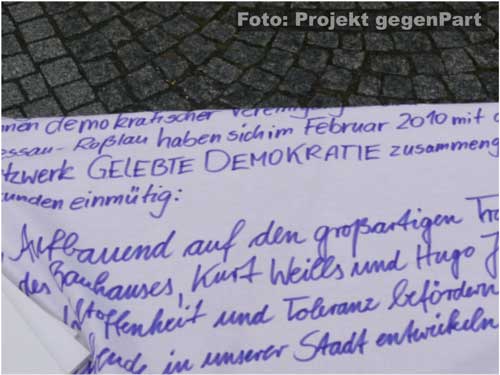 Foto: Projekt gegenPart
nnen demokratischer Vereinigung
essau-Roßlau haben sich im Februar 2010 mit d
tzwerk GELEBTE DEMOKRATIE zusammeng
unden einmütig:
Aufbauend auf den großartigen Tra
des Bauhauses, Kurt Weills und Hugo J
ltoffenheit und Toleranz befördern
ende in unserer Stadt entwickeln